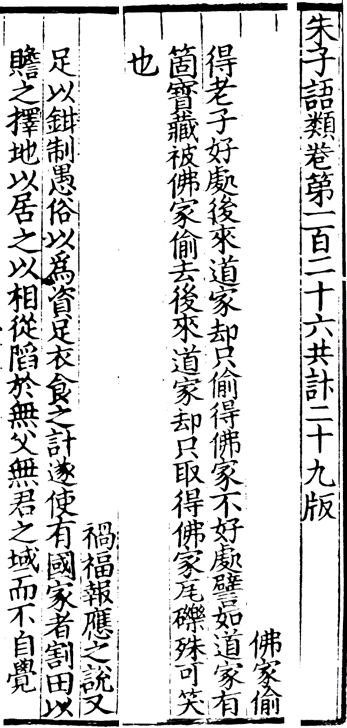 朱子語類卷第一百二十六共計二十九版
佛家偷
得老子好處後來道家却只偷得佛家不好處譬如道家有
箇寶藏被佛家偷去後來道家却只取得佛家瓦礫殊可笑
也
禍福報應之說又
足以鉗制愚俗以爲資足衣食之計遂使有國家者割田以
贍之擇地以居之以相從陷於無父無君之域而不自覺